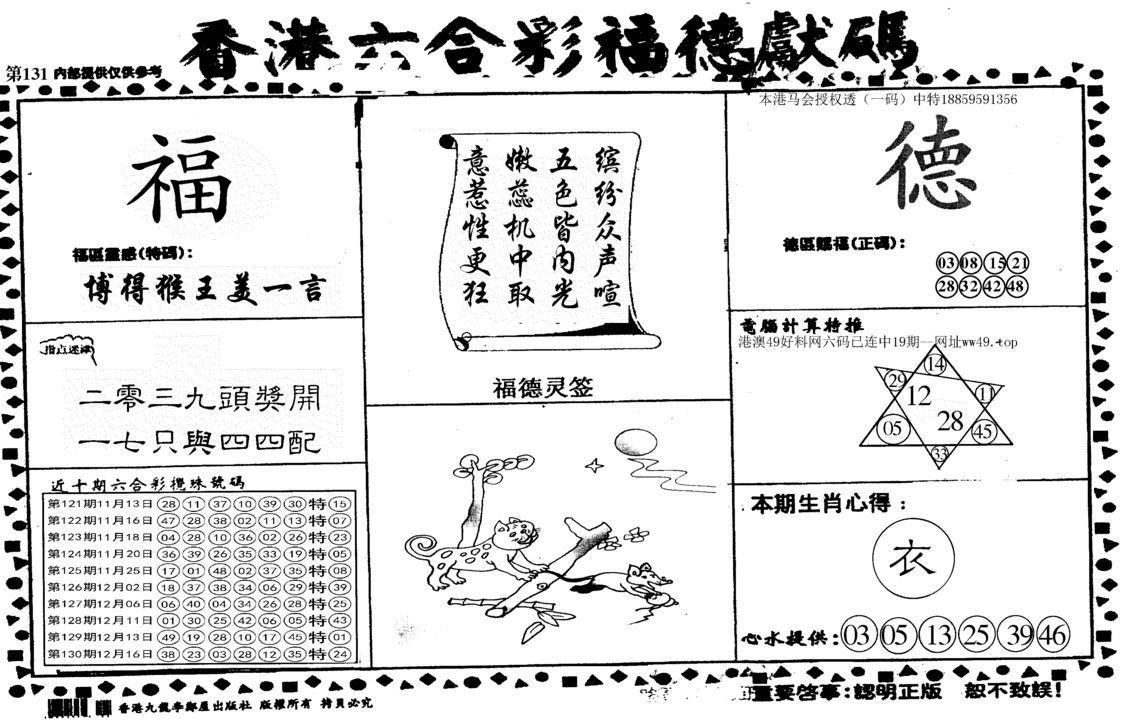 香港六合彩福德獻碼
第131 内部提供仅供参考
福
福區靈感(特碼):
博得猴王美一言
指点迷津
二零三九頭獎開
一七只與四四配
近十期六合彩攪珠號碼
第121期11月13日 28 11 37 10 39 30 特 15
第122期11月16日 47 28 38 02 11 13 特 07
第123期11月18日 04 28 10 36 02 26 特 23
第124期11月20日 36 39 26 35 33 19 特 05
第125期11月25日 17 01 48 02 37 35 特 08
第126期12月02日 18 37 38 34 06 29 特 39
第127期12月06日 06 40 04 34 26 28 特 25
第128期12月11日 01 30 25 42 06 05 特 43
第129期12月13日 49 19 28 10 17 45 特 01
第130期12月16日 38 23 03 28 12 35 特 24
缤纷众声喧
五色皆内光
嫩蕊机中取
意惹性更狂
福德灵签
本港马会授权透（一码）中特18859591356
德
德區賜福(正碼):
03 08 15 21
28 32 42 48
電腦計算特推
港澳49好料网六码已连中19期--网址ww49.-top
14
29 11
12
28
05 45
33
本期生肖心得:
衣
心水提供: 03 05 13 25 39 46
重要啓事:認明正版 恕不致誤!
版權所有 拷貝必究